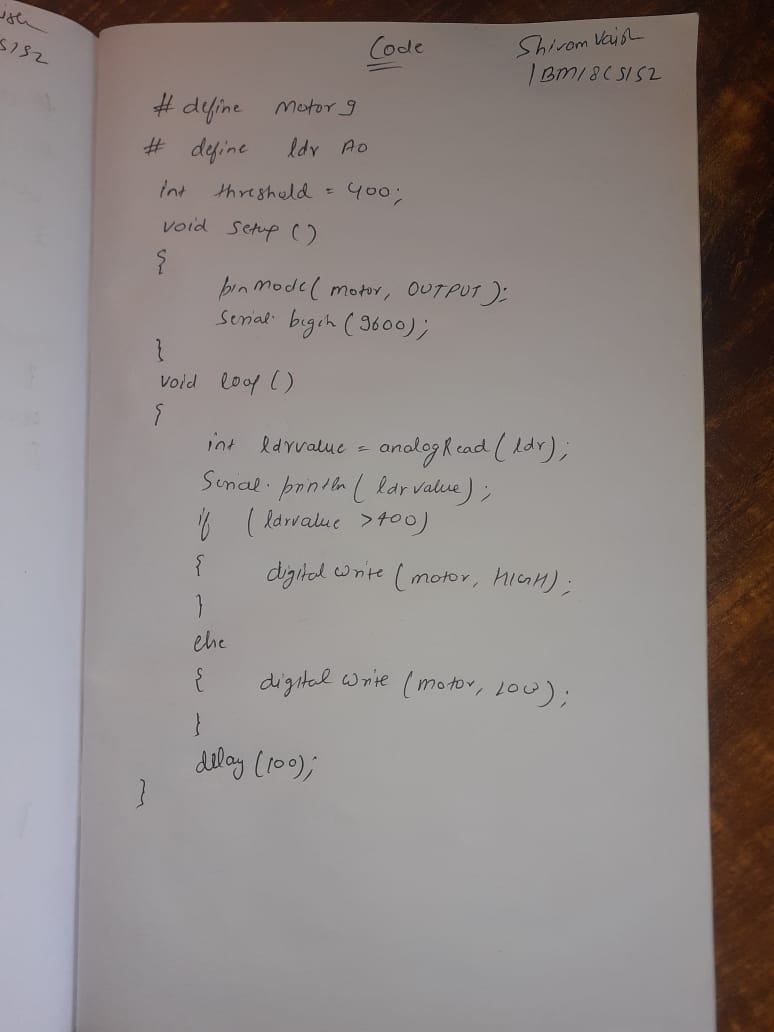 Code
Shivam Vaish
1BM18CS152
# define motor 9
# define ldr A0
int threshold = 400;
void setup ()
{
pinmode( motor, OUTPUT );
Serial. begin (9600);
}
void loop ()
{
int ldrvalue = analogRead ( ldr);
Serial. println ( ldrvalue);
if ( ldrvalue >400)
{ digital write ( motor, HIGH);
}
else
{ digital write (motor, LOW);
}
delay (100);
}